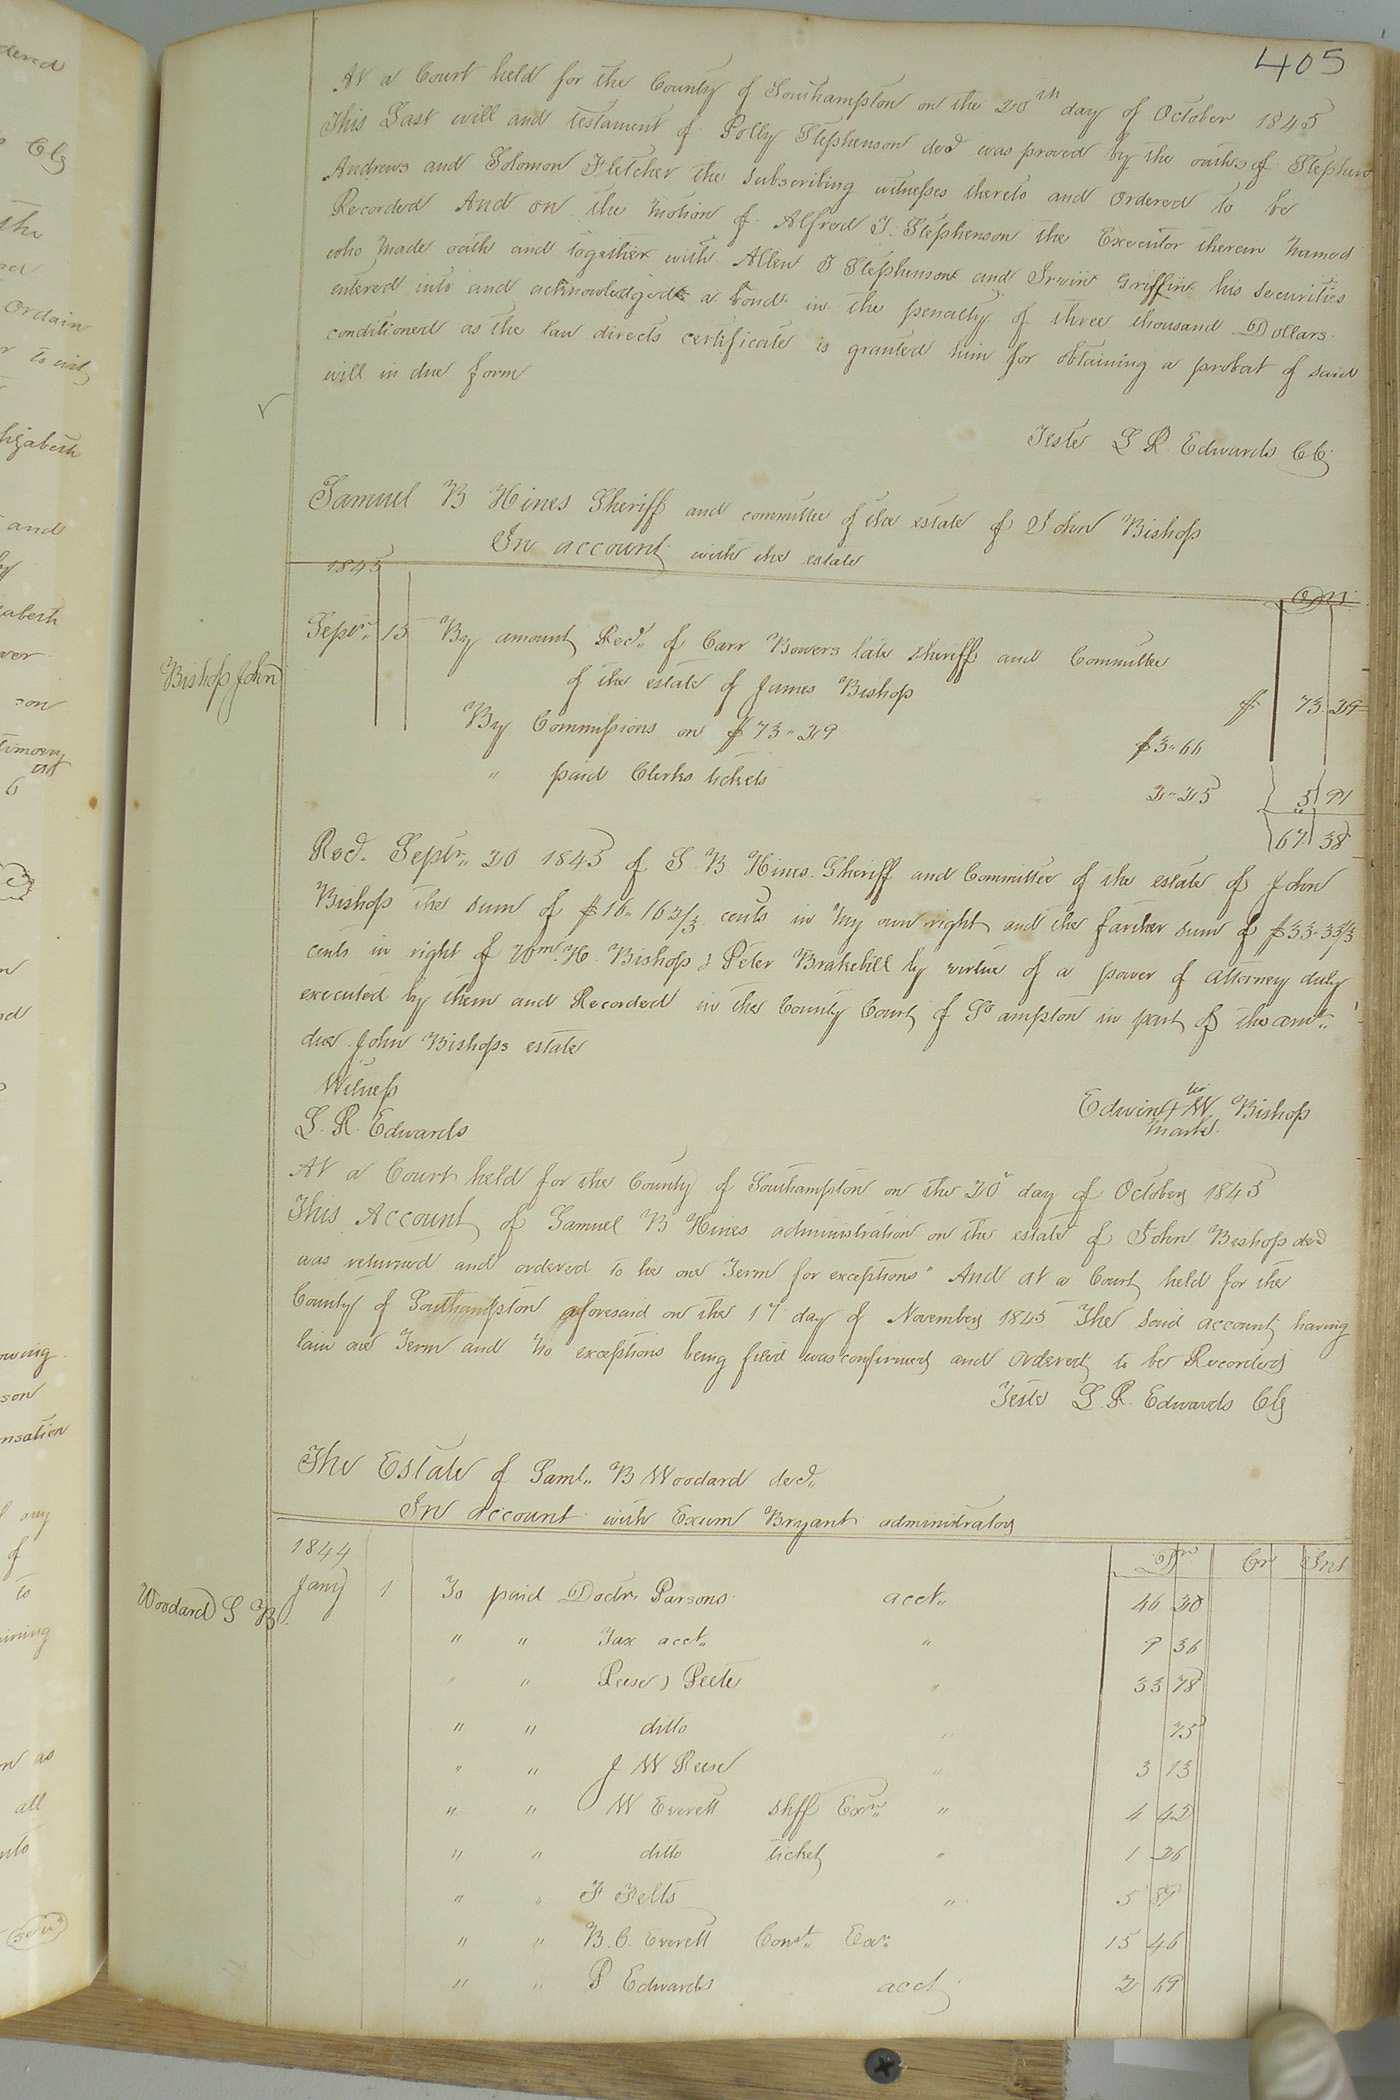 405
At a Court held for the County of Southampton on the 20th day of October 1845
This Last will and testament of Polly Stephenson decd was proved by the oaths of Stephen
Andrews and Solomon Fletcher the subscribing witnesses thereto and ordered to be
Recorded And on the Motion of Alfred J. Stephenson the Executor therein Named
who Made oath and together with Allen J Stephenson and Irwin Griffin his securities
entered into and acknowledged a bond in the penalty of three thousand Dollars
conditioned as the law directs certificate is granted him for obtaining a probat of said
will in due form
Teste L R. Edwards Clk
Samuel B Hines Sheriff and committee of the estate of John Bishop
In account with the estate
1845
Bishop John
Septr. 15 By amount Recd. of Carr Bowers late sheriff and Committee
of the estate of James Bishop $ 73 29
By Commissions on $73-29 $3-66
" paid Clerks tickets 2-25 5 91
67 38
Recd. Septr. 20 1845 of S. B Hines Sheriff and Committee of the estate of John
Bishop the sum of $16-16 2/3 cents in My own right and the farther sum of $33-33 1/3
cents in right of Wm. H. Bishop & Peter Brakebill by virtue of a power of attorney duly
executed by them and Recorded in the County Court of So ampton in part of the amt.
due John Bishops estate
Witness
L. R. Edwards
his
Edwin + W. Bishop
mark
At a Court held for the County of Southampton on the 20 day of October 1845
This Account of Samuel B Hines administration on the estate of John Bishop decd
was returned and ordered to lie one Term for exceptions" And at a Court held for the
County of Southampton aforesaid on the 17 day of November 1845 The said account having
lain one Term and No exceptions being filed was confirmed and ordered to be Recorded
Teste L. R. Edwards Clk
The Estate of Saml. B Woodard decd.
In account with Exum Bryant administrator
1844 Dr Cr Int
Woodard S B
Jany 1 To paid Doctr. Parsons acct. 46 20
" " Tax acct. " 9 36
" " Reese & Peete " 33 78
" " ditto " 75
" " J W Reese " 3 13
" " W Everett shff Exn. " 4 42
" " ditto ticket " 1 26
" " F Felts " 5 89
" " B. C. Everett Const. Exn. 15 46
" " P Edwards acct 2 69